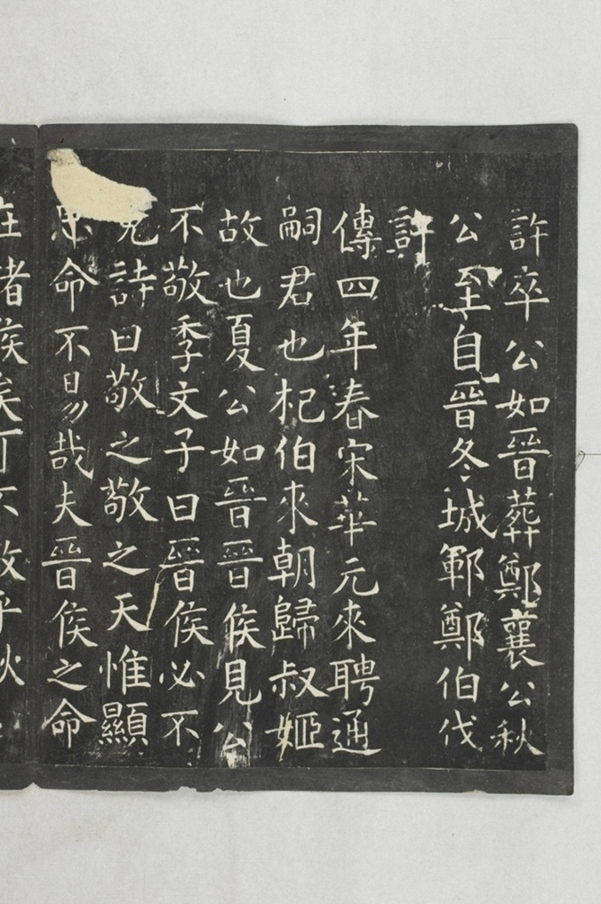 許卒公如晉葬鄭襄公秋
公至自晉冬城鄆鄭伯伐
許
傳四年春宋華元來聘通
嗣君也杞伯來朝歸叔姬
故也夏公如晉晉侯見公
不敬季文子曰晉侯必不
免詩曰敬之敬之天惟顯
思命不易哉夫晉侯之命
在諸侯矣可不敬乎秋